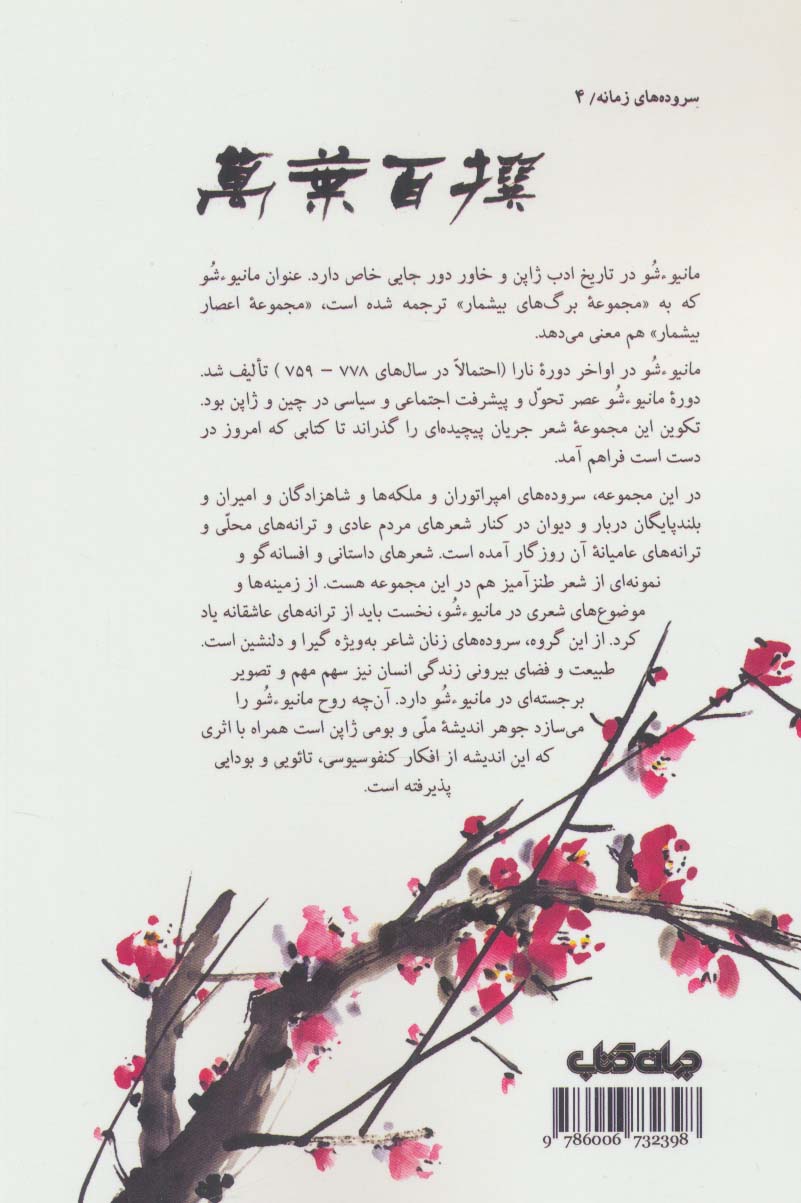 سروده‌های زمانه/ ۴
萬葉百撰
مانیوءشُو در تاریخ ادب ژاپن و خاور دور جایی خاص دارد. عنوان مانیوءشُو
که به «مجموعهٔ برگ‌های بیشمار» ترجمه شده است، «مجموعهٔ اعصار
بیشمار» هم معنی می‌دهد.
مانیوءشُو در اواخر دورهٔ نارا (احتمالاً در سال‌های ۷۷۸ – ۷۵۹ ) تألیف شد.
دورهٔ مانیوءشُو عصر تحوّل و پیشرفت اجتماعی و سیاسی در چین و ژاپن بود.
تکوین این مجموعهٔ شعر جریان پیچیده‌ای را گذراند تا کتابی که امروز در
دست است فراهم آمد.
در این مجموعه، سروده‌های امپراتوران و ملکه‌ها و شاهزادگان و امیران و
بلندپایگان دربار و دیوان در کنار شعرهای مردم عادی و ترانه‌های محلّی و
ترانه‌های عامیانهٔ آن روزگار آمده است. شعرهای داستانی و افسانه‌گو و
نمونه‌ای از شعر طنزآمیز هم در این مجموعه هست. از زمینه‌ها و
موضوع‌های شعری در مانیوءشُو، نخست باید از ترانه‌های عاشقانه یاد
کرد. از این گروه، سروده‌های زنان شاعر به‌ویژه گیرا و دلنشین است.
طبیعت و فضای بیرونی زندگی انسان نیز سهم مهم و تصویر
برجسته‌ای در مانیوءشُو دارد. آن‌چه روح مانیوءشُو را
می‌سازد جوهر اندیشهٔ ملّی و بومی ژاپن است همراه با اثری
که این اندیشه از افکار کنفوسیوسی، تائویی و بودایی
پذیرفته است.
جهان کتاب
9 786006 732398